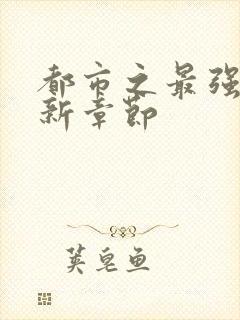 都市之最强
新章节
荚皂鱼